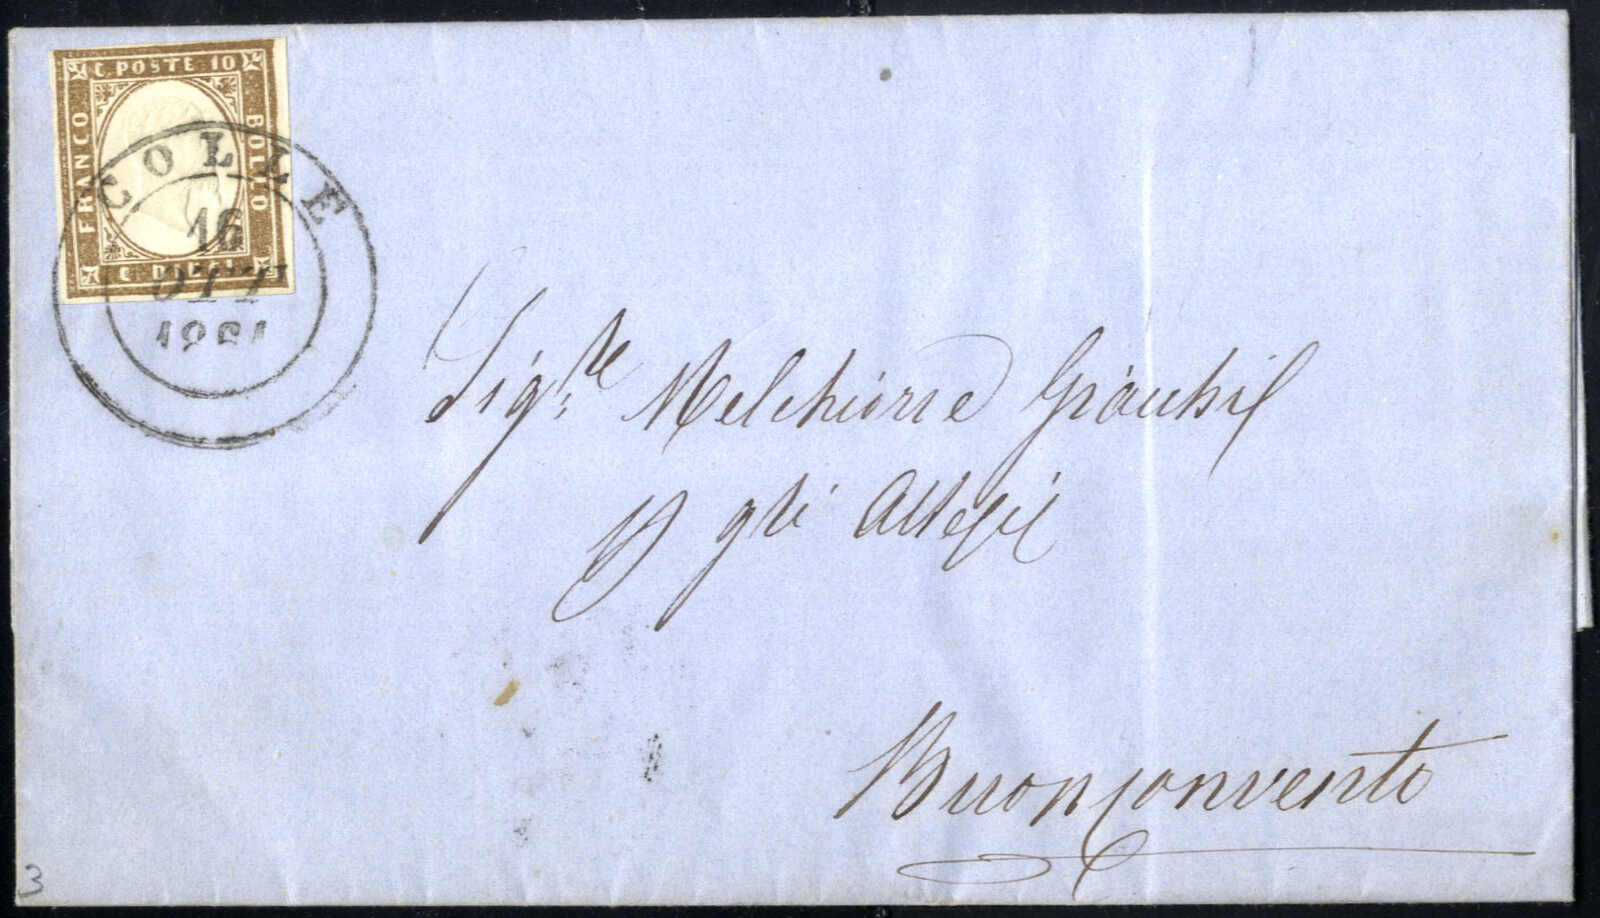 C. POSTE 10
FRANCO
BOLLO
C. DIECI
COLLE
16
OTT
1861
Sig.re Melchiorre
gli
Buonconvento
3